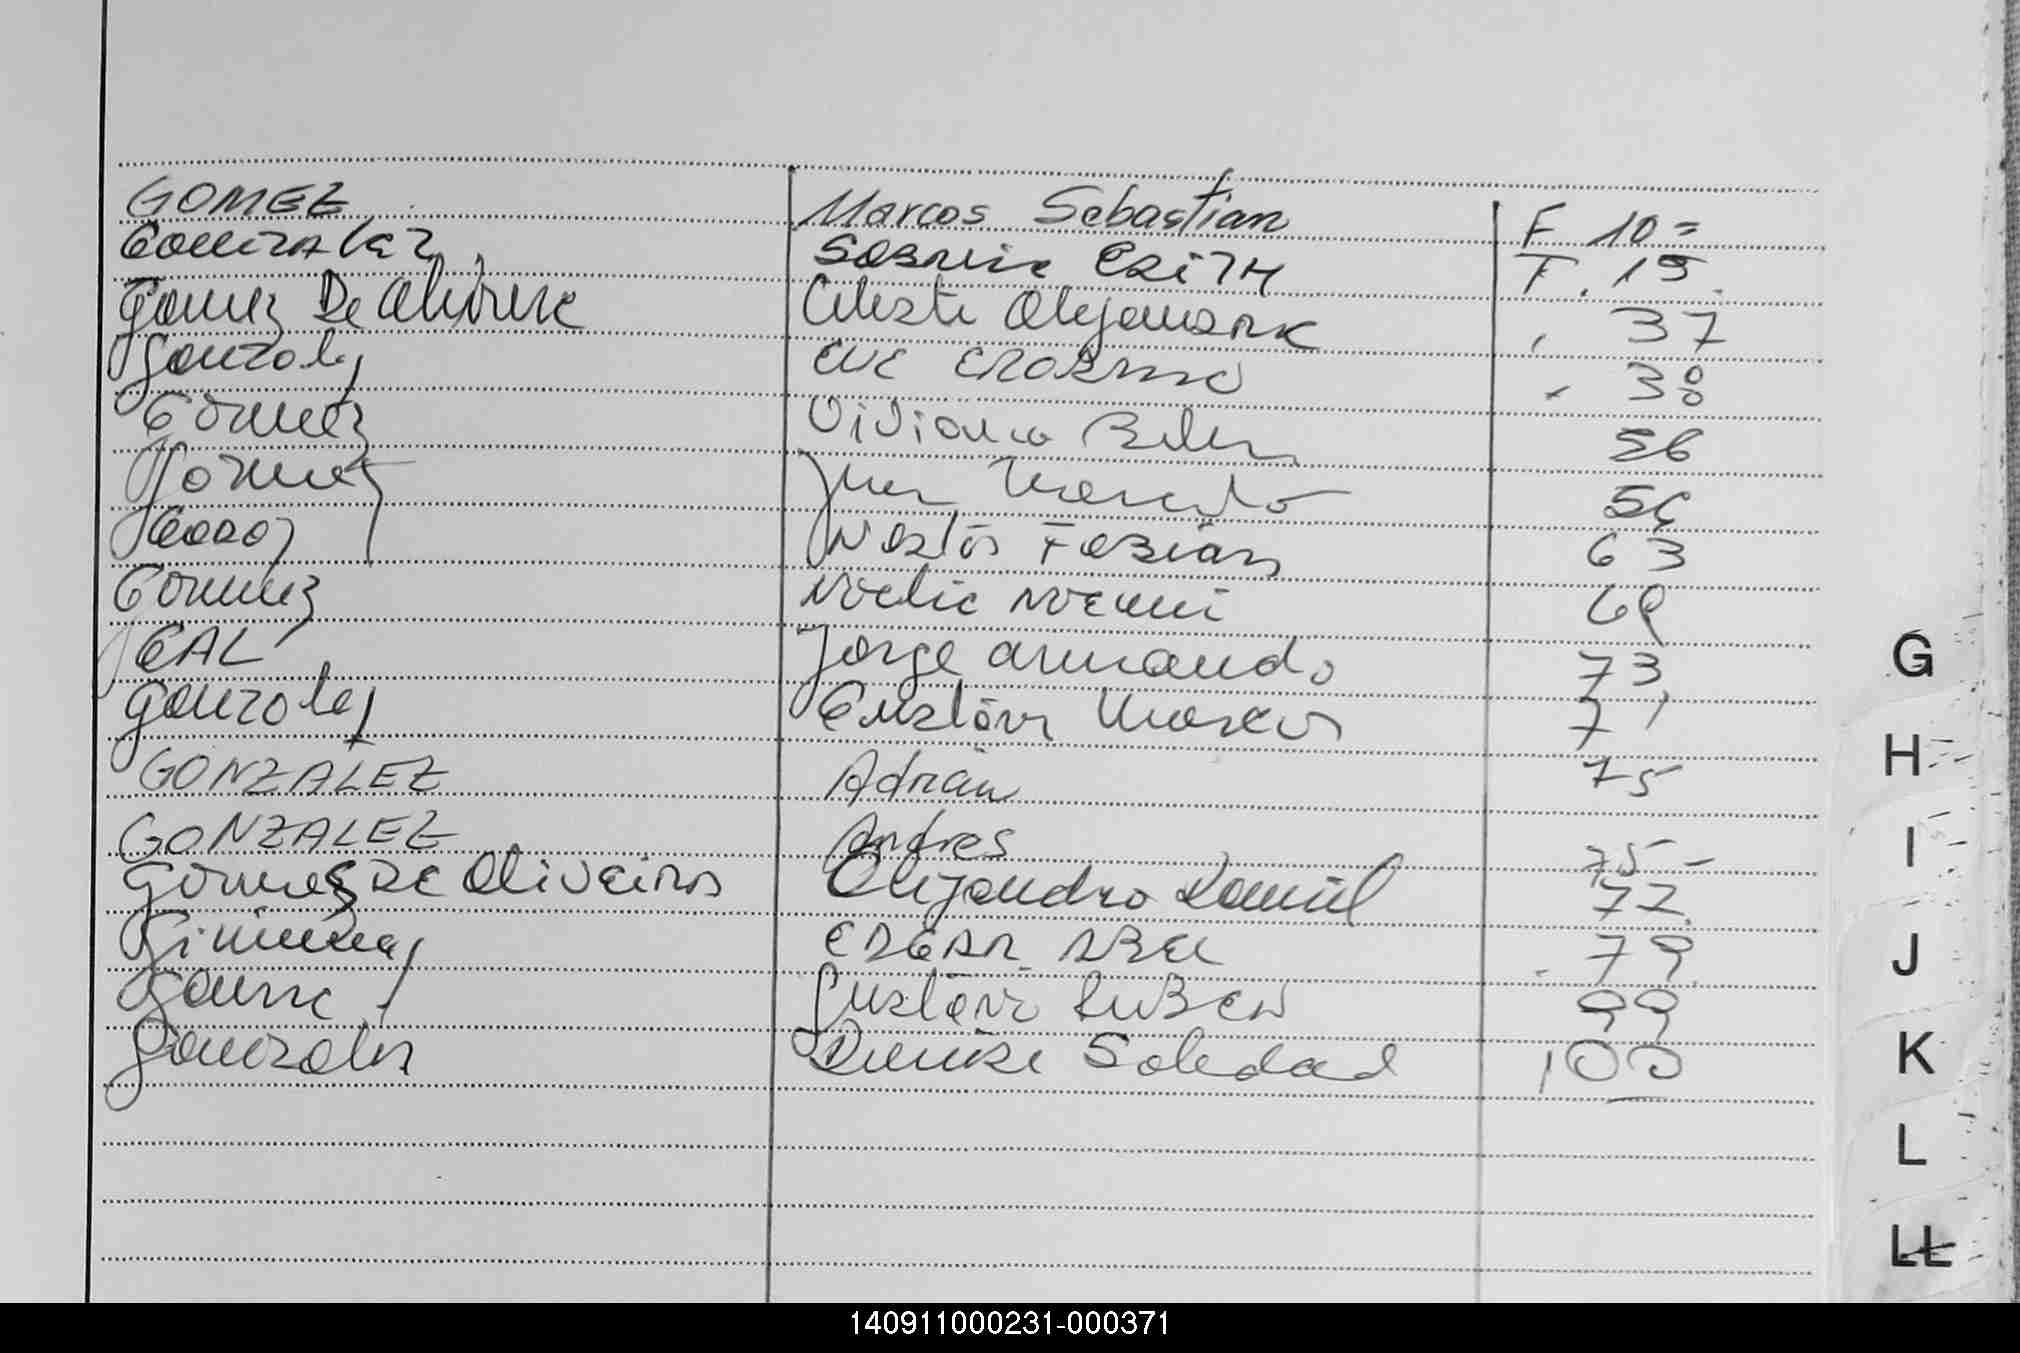 GOMEZ Marcos Sebastian F 10=
Gonzalez Sabrina Edith T. 19.
Gomez De Olivera Celeste Alejandra , 37
Gonzalez Eve 38
Gomez Viviana Belen 56
Gomez Juan Marcelo
Nestor Fabian 63
Gomez Noelia Noemi 69
GAL Jorge Armando 73,
Gonzalez Gustavo Marcos 7
GONZALEZ Adrian 75
GONZALEZ Andres 75-
Gomes De Oliveira Alejandro Daniel 77.
Gimenez EDGAR ABEL . 79.
Gustavo RUBEN 99
Gonzalez Denise Soledad 100
G
H
I
J
K
L
LL
140911000231-000371